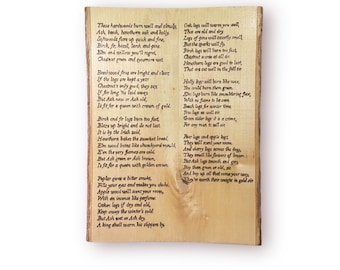 These hardwoods burn well and slowly,
Ash, beech, hawthorn oak and holly.
Softwoods flare up quick and fine,
Birch, fir, hazel, larch and pine.
Elm and willow you'll regret,
Chestnut green and sycamore wet.
Beechwood fires are bright and clear,
If the logs are kept a year.
Chestnut's only good, they say,
If for long 'tis laid away.
But Ash new or Ash old,
Is fit for a queen with crown of gold.
Birch and fir logs burn too fast,
Blaze up bright and do not last.
It is by the Irish said,
Hawthorn bakes the sweetest bread.
Elm wood burns like churchyard mould,
E'en the very flames are cold.
But Ash green or Ash brown,
Is fit for a queen with golden crown.
Poplar gives a bitter smoke,
Fills your eyes and makes you choke.
Apple wood will scent your room,
With an incense like perfume.
Oaken logs if dry and old,
Keep away the winter's cold.
But Ash wet or Ash dry,
A king shall warm his slippers by.
Oak logs will warm you well,
That are old and dry.
Logs of pine will sweetly smell,
But the sparks will fly.
Birch logs will burn too fast,
Chestnut scarce at all
Hawthorn logs are good to last,
That are cut well in the fall
Holly logs will burn like wax,
You could burn them green.
Elm logs burn like smouldering flax,
With no flame to be seen.
Beech logs for winter time,
Yew logs as well
Green elder logs it is a crime,
For any man to sell
Pear logs and apple logs,
They will scent your room.
And cherry logs across the dogs,
They smell like flowers of
But Ash logs smooth and grey,
Buy them green or old,
And buy up all that come your way,
They're worth their weight in gold